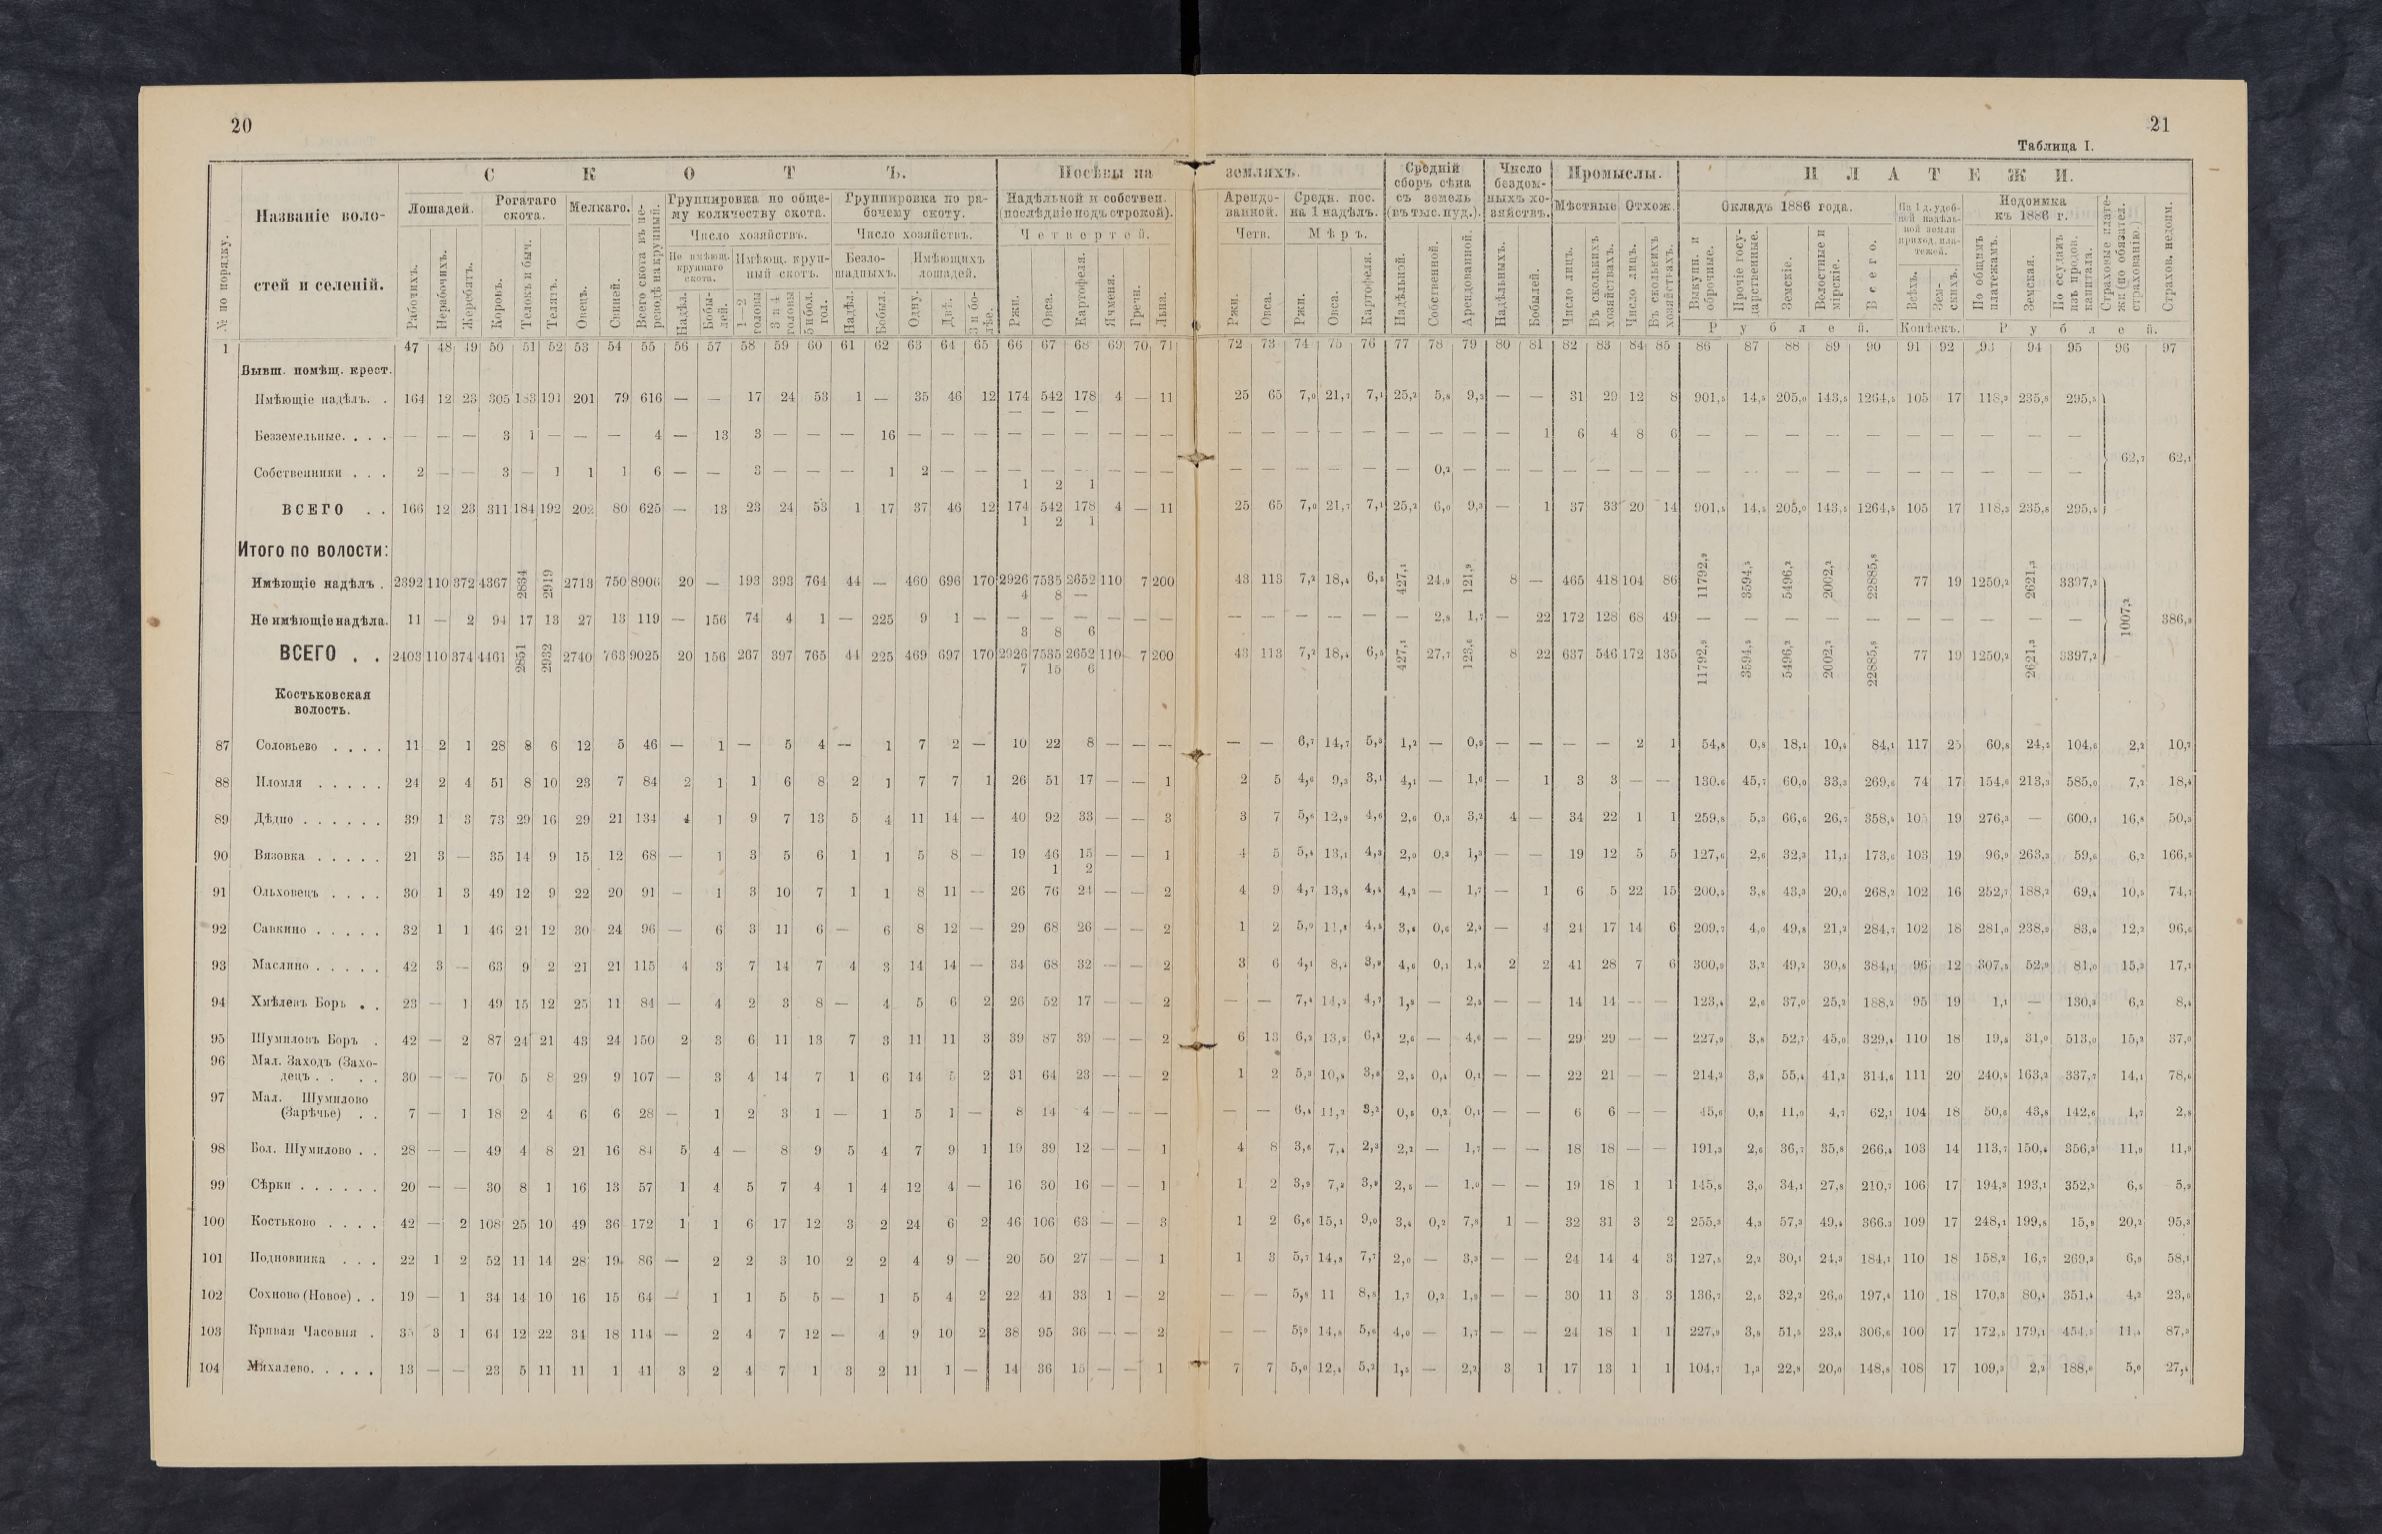 20
21
Таблица I.
№ по порядку.
Названіе воло-
стей и селеній.
С К О Т Ъ.
Посѣвы на земляхъ.
Средній сборъ сѣна съ земель (въ тыс. пуд.).
Число бездом-ныхъ хо-зяйствъ.
Промыслы.
П Л А Т Е Ж И.
Лошадей.
Рогатаго скота.
Мелкаго.
Всего скота въ пе-реводѣ на крупный.
Группировка по обще-му количеству скота.
Группировка по ра-бочему скоту.
Надѣльной и собствен. (послѣдніе подъ строкой).
Арендо-ванной.
Средн. пос. на 1 надѣлъ.
Мѣстные
Отхож.
Окладъ 1886 года.
На 1 д. удоб-ной надѣль-ной земли приход. пла-тежей.
Недоимка къ 1886 г.
Страховые плате-жи (по обязател. страхованію.)
Страхов. недоим.
Число хозяйствъ.
Число хозяйствъ.
Ч е т в е р т е й.
Четв.
М ѣ р ъ.
Не имѣющ. крупнаго скота.
Имѣющ. круп-ный скотъ.
Безло-шадныхъ.
Имѣющихъ лошадей.
Рабочихъ.
Нерабочихъ.
Жеребятъ.
Коровъ.
Телокъ и быч.
Телятъ.
Овецъ.
Свиней.
Надѣл.
Бобы-лей.
1—2 головы
3 и 4 головы
5 и бол. гол.
Надѣл.
Бобыл.
Одну.
Двѣ.
3 и бо-лѣе.
Ржи.
Овса.
Картофеля.
Ячменя.
Гречи.
Льна.
Ржи.
Овса.
Ржи.
Овса.
Картофеля.
Надѣльной.
Собственной.
Арендованной.
Надѣльныхъ.
Бобылей.
Число лицъ.
Въ сколькихъ хозяйствахъ.
Число лицъ.
Въ сколькихъ хозяйствахъ.
Выкупн. и оброчные.
Прочіе госу-дарственные.
Земскіе.
Волостные и мірскіе.
В с е г о.
Всѣхъ.
Зем-скихъ.
По общимъ платежамъ.
Земская.
По ссудамъ изъ продов. капитала.
Р у б л е й.
Копѣекъ.
Р у б л е й.
1 47 48 49 50 51 52 53 54 55 56 57 58 59 60 61 62 63 64 65 66 67 68 69 70 71 72 73 74 75 76 77 78 79 80 81 82 83 84 85 86 87 88 89 90 91 92 93 94 95 96 97
Бывш. помѣщ. крест.
Имѣющіе надѣлъ. . 164 12 23 305 183 191 201 79 616 — — 17 24 53 1 — 35 46 12 174 542 178 4 — 11 25 65 7,0 21,7 7,1 25,2 5,8 9,3 — — 31 29 12 8 901,5 14,5 205,0 143,5 1264,5 105 17 118,3 235,8 295,5
— — —
Безземельные. . . . — — — 3 1 — — — 4 — 13 3 — — — 16 — — — — — — — — — — — — — — — — — — 1 6 4 8 6 — — — — — — — — — —
62,7 62,1
Собственники . . . 2 — — 3 — 1 1 1 6 — — 3 — — — 1 2 — — — — — — — — — — — — — — 0,2 — — — — — — — — — — — — — — — — —
1 2 1
ВСЕГО . . 166 12 23 311 184 192 202 80 625 — 13 23 24 53 1 17 37 46 12 174 542 178 4 — 11 25 65 7,0 21,7 7,1 25,2 6,0 9,3 — 1 37 33 20 14 901,5 14,5 205,0 143,5 1264,5 105 17 118,3 235,8 295,5
1 2 1
Итого по волости:
Имѣющіе надѣлъ . 2392 110 372 4367 2834 2919 2713 750 8906 20 — 193 393 764 44 — 460 696 170 2926 7535 2652 110 7 200 43 113 7,2 18,4 6,5 427,1 24,9 121,9 8 — 465 418 104 86 11792,9 3594,5 5496,2 2002,2 22885,8 77 19 1250,2 2621,3 3397,2
4 8 —
Не имѣющіе надѣла. 11 — 2 94 17 13 27 13 119 — 156 74 4 1 — 225 9 1 — — — — — — — — — — — — — 2,8 1,7 — 22 172 128 68 49 — — — — — — — — — — 1007,2 386,3
3 8 6
ВСЕГО . . 2403 110 374 4461 2851 2932 2740 763 9025 20 156 267 397 765 44 225 469 697 170 2926 7535 2652 110 7 200 43 113 7,2 18,4 6,5 427,1 27,7 123,6 8 22 637 546 172 135 11792,9 3594,5 5496,2 2002,2 22885,8 77 19 1250,2 2621,3 3397,2
7 15 6
Костьковская
волость.
87 Соловьево . . . . 11 2 1 28 8 6 12 5 46 — 1 — 5 4 — 1 7 2 — 10 22 8 — — — — — 6,7 14,7 5,3 1,2 — 0,9 — — — — 2 1 54,8 0,8 18,1 10,4 84,1 117 25 60,8 24,5 104,6 2,2 10,7
88 Пломля . . . . . 24 2 4 51 8 10 23 7 84 2 1 1 6 8 2 1 7 7 1 26 51 17 — — 1 2 5 4,6 9,3 3,1 4,1 — 1,6 — 1 3 3 — — 130,6 45,7 60,0 33,3 269,6 74 17 154,6 213,3 585,0 7,2 18,4
89 Дѣдно . . . . . . 39 1 3 73 29 16 29 21 134 4 1 9 7 13 5 4 11 14 — 40 92 33 — — 3 3 7 5,6 12,9 4,6 2,6 0,3 3,2 4 — 34 22 1 1 259,8 5,3 66,6 26,7 358,4 105 19 276,3 — 600,1 16,8 50,3
90 Вязовка . . . . . 21 3 — 35 14 9 15 12 68 — 1 3 5 6 1 1 5 8 — 19 46 15 — — 1 4 5 5,4 13,1 4,3 2,0 0,3 1,3 — — 19 12 5 5 127,6 2,6 32,3 11,1 173,6 103 19 96,9 263,3 59,6 6,2 166,5
1 2
91 Ольховецъ . . . . 30 1 3 49 12 9 22 20 91 — 1 3 10 7 1 1 8 11 — 26 76 24 — — 2 4 9 4,7 13,8 4,4 4,2 — 1,7 — 1 6 5 22 15 200,5 3,8 43,3 20,6 268,2 102 16 252,7 188,2 69,4 10,5 74,7
92 Савкино . . . . . 32 1 1 46 21 12 30 24 96 — 6 3 11 6 — 6 8 12 — 29 68 26 — — 2 1 2 5,0 11,8 4,5 3,4 0,6 2,4 — 4 24 17 14 6 209,7 4,0 49,8 21,2 284,7 102 18 281,0 238,9 83,6 12,2 96,6
93 Маслино . . . . . 42 3 — 63 9 2 21 21 115 4 3 7 14 7 4 3 14 14 — 34 68 32 — — 2 3 6 4,1 8,2 3,9 4,6 0,1 1,4 2 2 41 28 7 6 300,9 3,2 49,2 30,8 384,1 96 12 307,5 52,9 81,0 15,3 17,1
94 Хмѣлевъ Боръ . . 23 — 1 49 15 12 25 11 84 — 4 2 3 8 — 4 5 6 2 26 52 17 — — 2 — — 7,4 14,3 4,7 1,8 — 2,5 — — 14 14 — — 123,4 2,6 37,0 25,2 188,2 95 19 1,1 — 130,3 6,2 8,4
95 Шумиловъ Боръ . 42 — 2 87 24 21 43 24 150 2 3 6 11 13 7 3 11 11 3 39 87 39 — — 2 6 13 6,2 13,9 6,2 2,6 — 4,6 — — 29 29 — — 227,9 3,8 52,7 45,0 329,4 110 18 19,8 31,0 513,0 15,2 37,0
96 Мал. Заходъ (Захо-
децъ . . . . 30 — — 70 5 8 29 9 107 — 3 4 14 7 1 6 14 5 2 31 64 23 — — 2 1 2 5,3 10,8 3,8 2,5 0,4 0,1 — — 22 21 — — 214,2 3,8 55,4 41,2 314,6 111 20 240,5 163,2 337,7 14,1 78,6
97 Мал. Шумилово
(Зарѣчье) . . 7 — 1 18 2 4 6 6 28 — 1 2 3 1 — 1 5 1 — 8 14 4 — — — — — 6,4 11,2 3,2 0,5 0,2 0,1 — — 6 6 — — 45,6 0,8 11,0 4,7 62,1 104 18 50,6 43,8 142,6 1,7 2,8
98 Бол. Шумилово . . 28 — — 49 4 8 21 16 84 5 4 — 8 9 5 4 7 9 1 19 39 12 — — 1 4 8 3,6 7,4 2,3 2,2 — 1,7 — — 18 18 — — 191,3 2,6 36,7 35,8 266,4 103 14 113,7 150,4 356,3 11,9 11,9
99 Сѣрки . . . . . . 20 — — 30 8 1 16 13 57 1 4 5 7 4 1 4 12 4 — 16 30 16 — — 1 1 2 3,9 7,2 3,9 2,5 — 1,0 — — 19 18 1 1 145,8 3,0 34,1 27,8 210,7 106 17 194,3 193,1 352,2 6,5 5,9
100 Костьково . . . . 42 — 2 108 25 10 49 36 172 1 1 6 17 12 3 2 24 6 2 46 106 63 — — 3 1 2 6,6 15,1 9,0 3,4 0,2 7,8 1 — 32 31 3 2 255,3 4,3 57,3 49,4 366,3 109 17 248,1 199,8 15,9 20,2 95,3
101 Подновинка . . . 22 1 2 52 11 14 28 19 86 — 2 2 3 10 2 2 4 9 — 20 50 27 — — 1 1 3 5,7 14,8 7,7 2,0 — 3,3 — — 24 14 4 3 127,5 2,2 30,1 24,3 184,1 110 18 158,2 16,7 269,3 6,9 58,1
102 Сохново (Новое) . . 19 — 1 34 14 10 16 15 64 — 1 1 5 5 — 1 5 4 2 22 41 33 1 — 2 — — 5,8 11 8,8 1,7 0,2 1,9 — — 30 11 3 3 136,7 2,5 32,2 26,0 197,4 110 18 170,3 80,4 351,4 4,2 23,6
103 Кривая Часовня . 35 3 1 64 12 22 34 18 114 — 2 4 7 12 — 4 9 10 2 38 95 36 — — 2 — — 5,9 14,8 5,6 4,0 — 1,7 — — 24 18 1 1 227,9 3,8 51,5 23,4 306,6 100 17 172,5 179,1 454,5 11,4 87,3
104 Михалево. . . . . 13 — — 23 5 11 11 1 41 3 2 4 7 1 3 2 11 1 — 14 36 15 — — 1 7 7 5,0 12,4 5,2 1,5 — 2,2 3 1 17 13 1 1 104,7 1,3 22,8 20,0 148,8 108 17 109,3 2,2 188,0 5,0 27,4